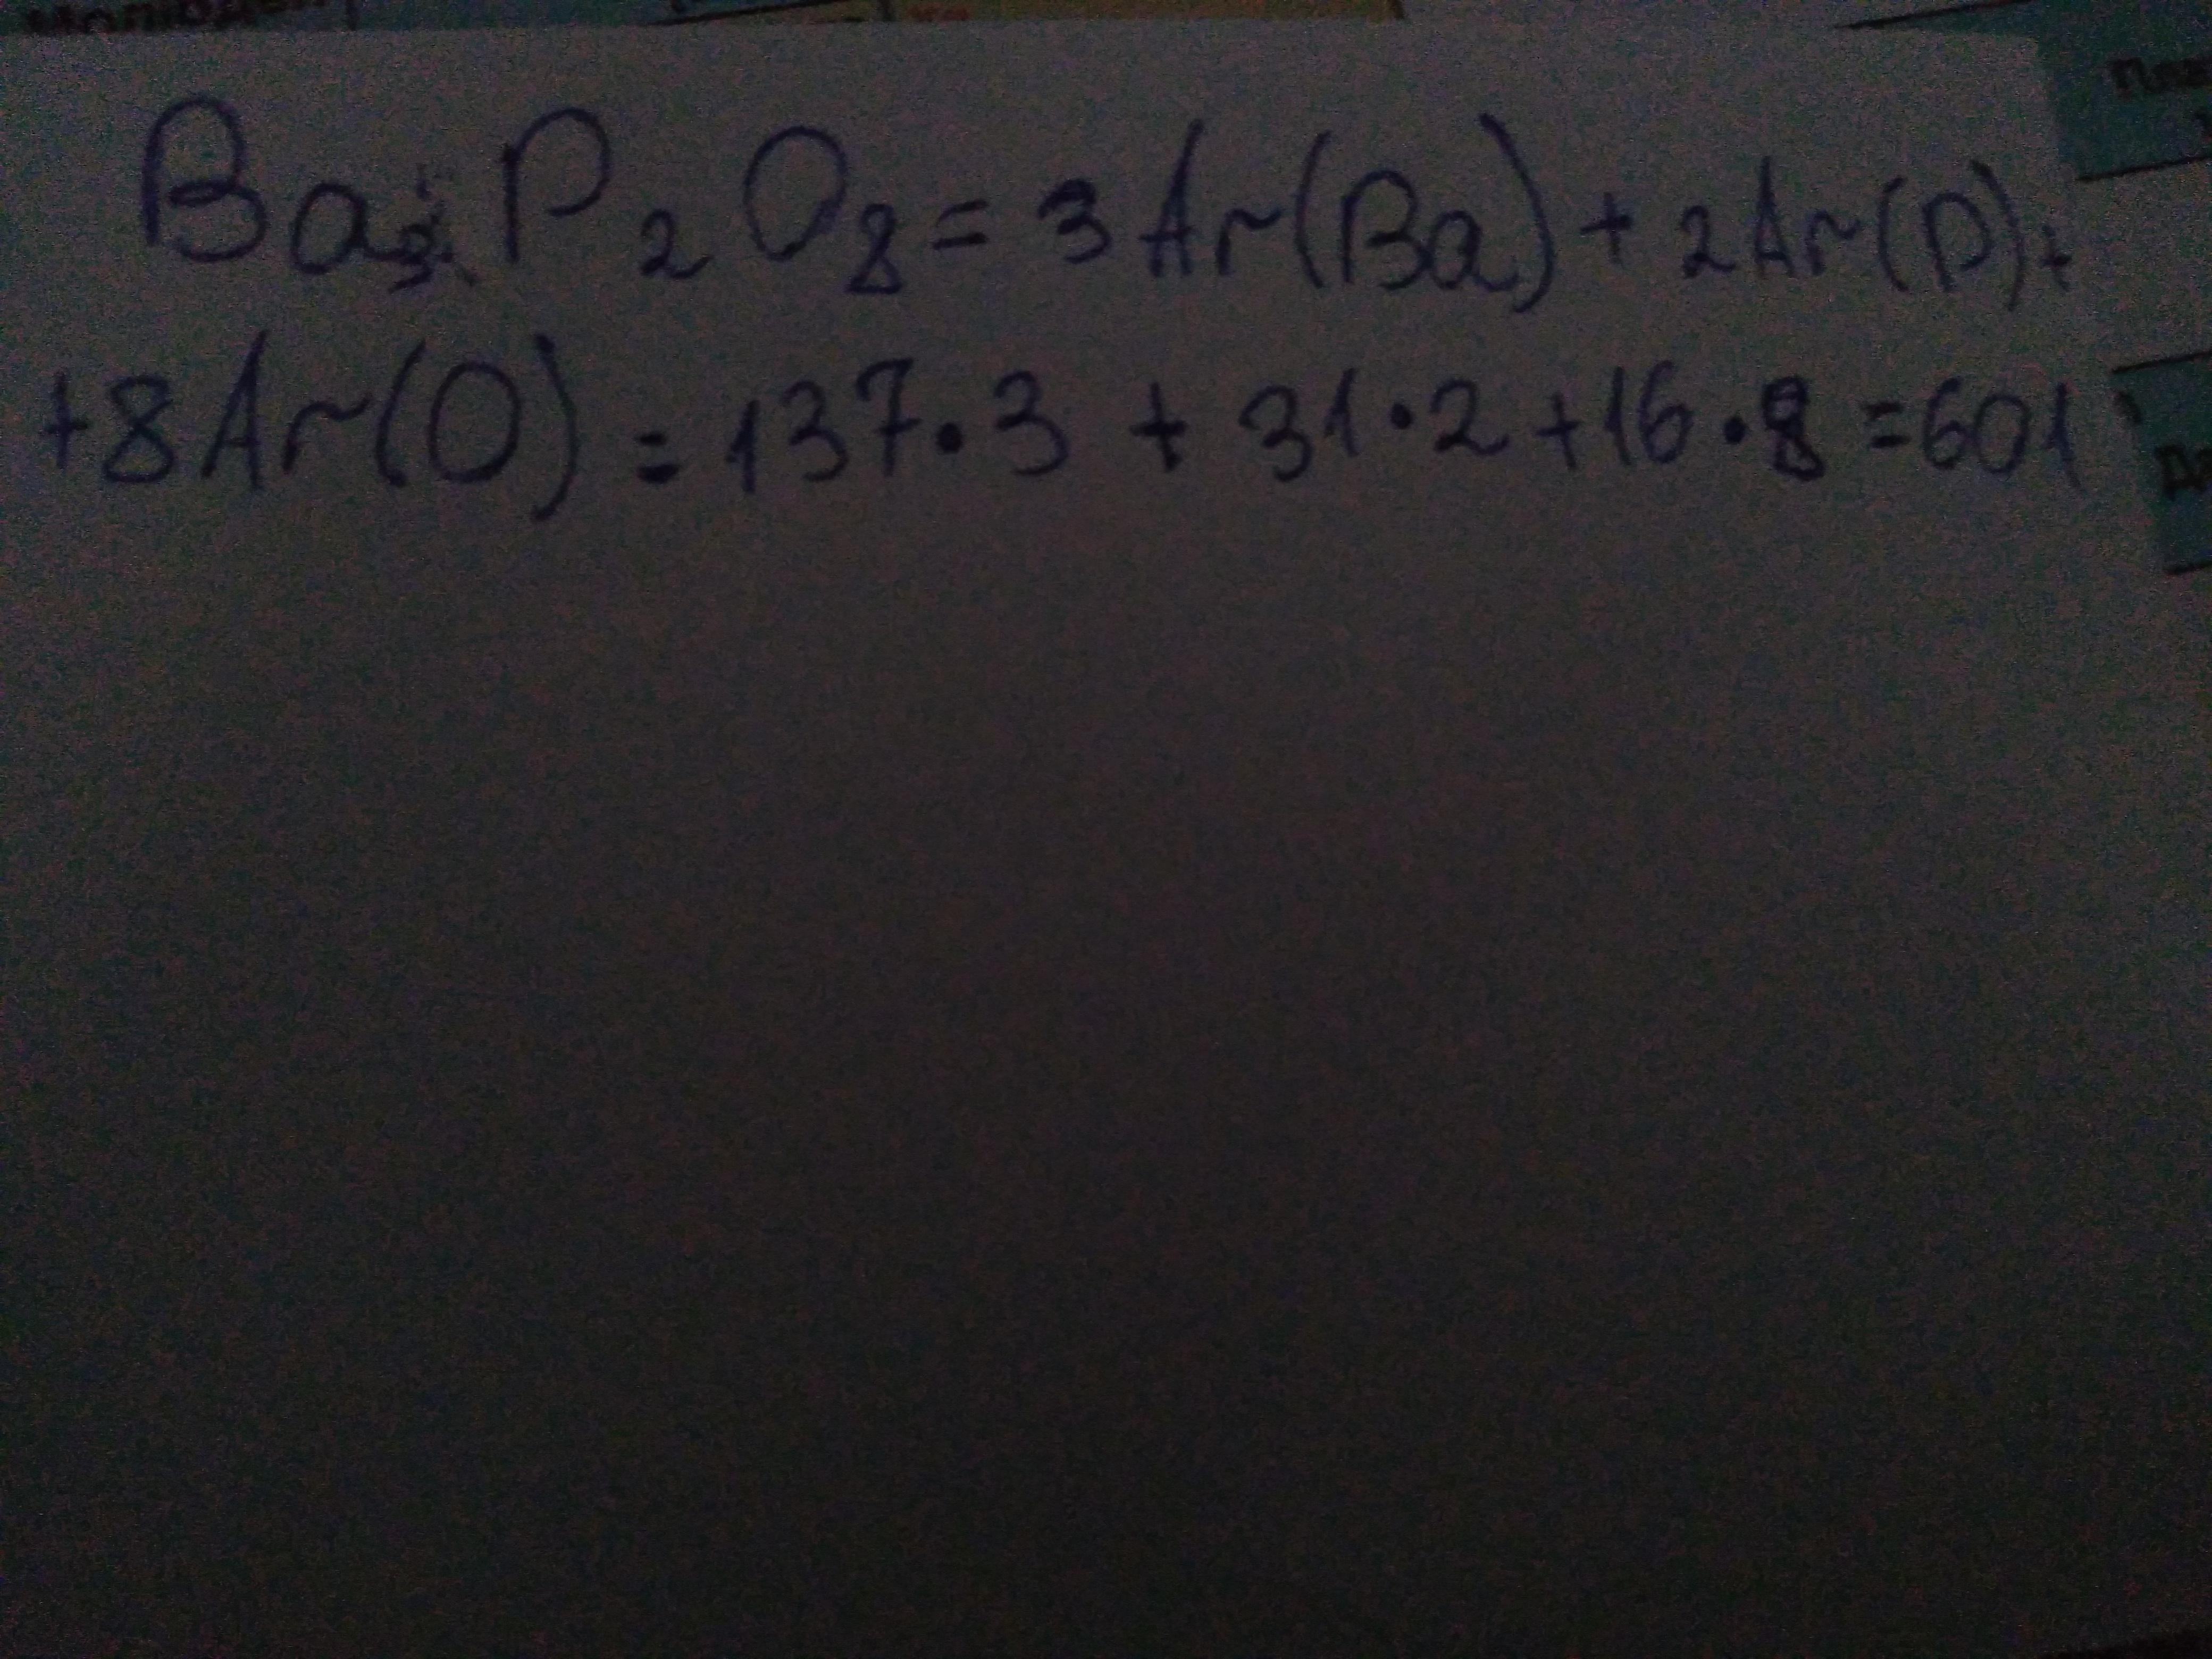 Ba₃P₂O₈ = 3Ar(Ba) + 2Ar(P) +
+8Ar(O) = 137·3 + 31·2 +16·8 =601